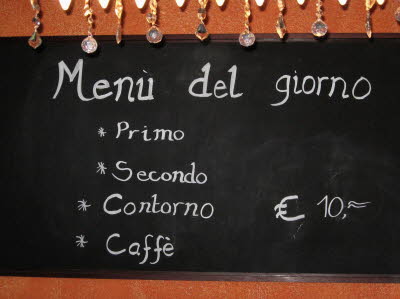 Menù del giorno
* Primo
* Secondo
* Contorno € 10,=
* Caffè